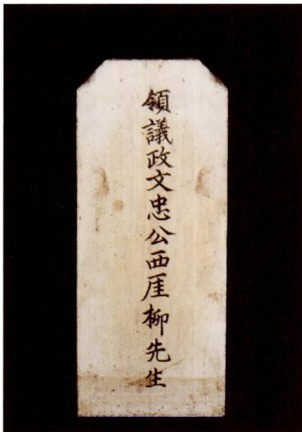 領議政文忠公西厓柳先生